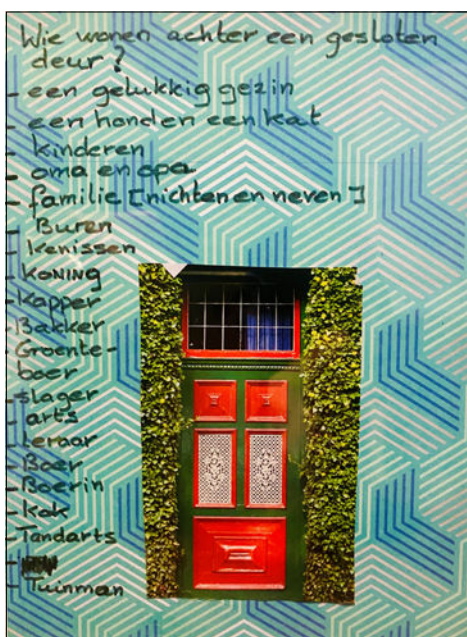 Wie wonen achter een gesloten
deur?
- een gelukkig gezin
- een hond en een kat
- kinderen
- oma en opa
- familie [nichten en neven]
- Buren
- kenissen
- KONING
- Kapper
- Bakker
- Groente-
boer
- slager
- arts
- Leraar
- Boer
- Boerin
- kok
- Tandarts
-
- Tuinman